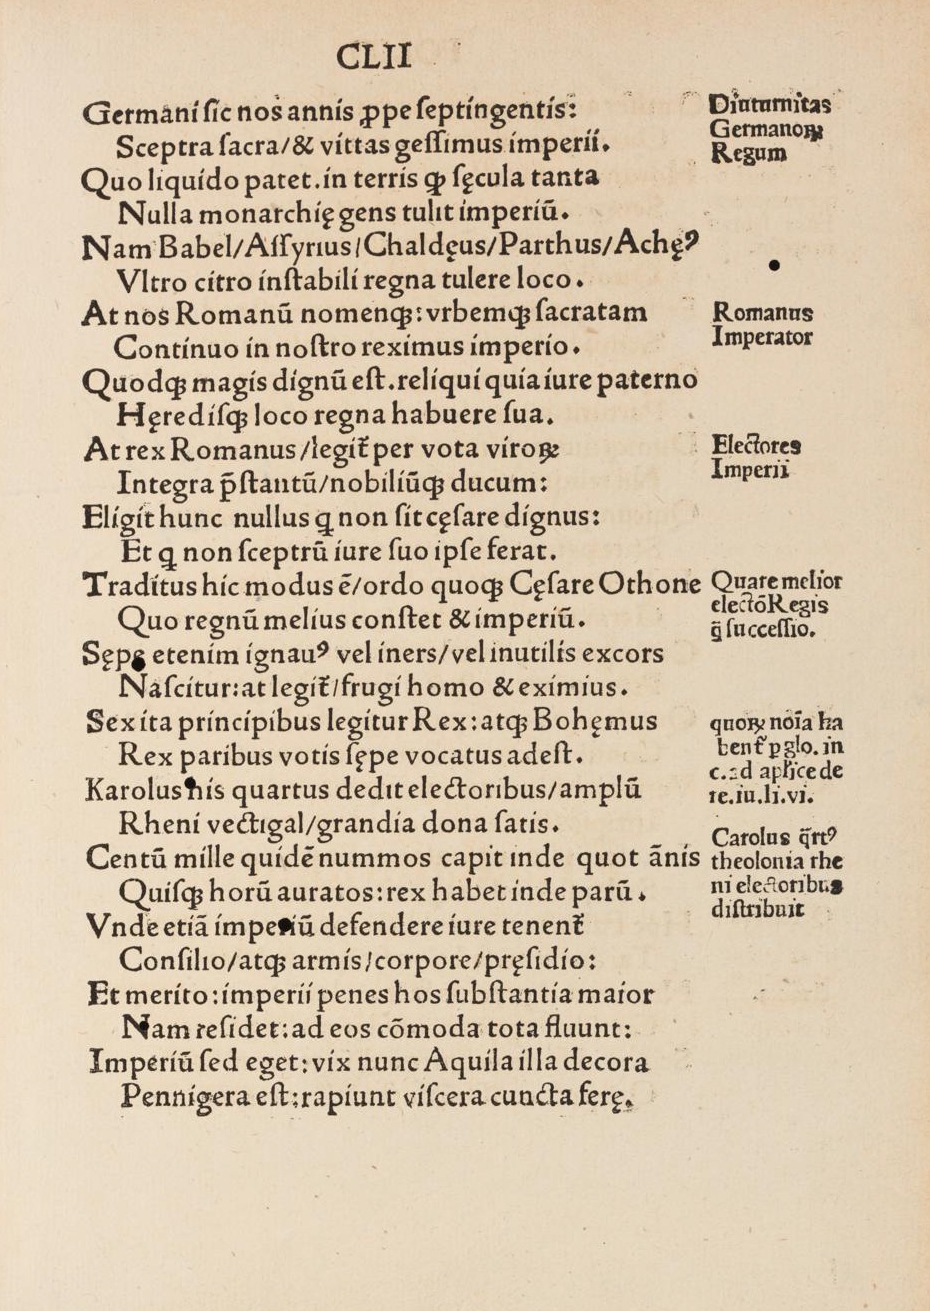 CLII
Germani ſic nos annis ꝓpe ſeptingentis:
Sceptra ſacra/& vittas geſſimus imperii.
Quo liquido patet.in terris ꝙ ſęcula tanta
Nulla monarchię gens tulit imperiū.
Nam Babel/Aſſyrius/Chaldęus/Parthus/Achęꝰ
Vltro citro inſtabili regna tulere loco.
At nos Romanū nomenqꝫ:vrbemqꝫ ſacratam
Continuo in noſtro reximus imperio.
Quodqꝫ magis dignū eſt.reliqui quia iure paterno
Hęrediſqꝫ loco regna habuere ſua.
At rex Romanus/legit᷑ per vota viroꝝ
Integra p̄ſtantū/nobiliūqꝫ ducum:
Eligit hunc nullus ꝗ non ſit cęſare dignus:
Et ꝗ non ſceptrū iure ſuo ipſe ferat.
Traditus hic modus ē/ordo quoqꝫ Cęſare Othone
Quo regnū melius conſtet & imperiū.
Sępe etenim ignauꝰ vel iners/vel inutilis excors
Naſcitur:at legit᷑/frugi homo & eximius.
Sex ita principibus legitur Rex:atqꝫ Bohęmus
Rex paribus votis ſępe vocatus adeſt.
Karolus his quartus dedit electoribus/amplū
Rheni vectigal/grandia dona ſatis.
Centū mille quidē nummos capit inde quot ānis
Quiſqꝫ horū auratos:rex habet inde parū.
Vnde etiā imperiū defendere iure tenent᷑
Conſilio/atqꝫ armis/corpore/pręſidio:
Et merito:imperii penes hos ſubſtantia maior
Nam reſidet:ad eos cōmoda tota fluunt:
Imperiū ſed eget:vix nunc Aquila illa decora
Pennigera eſt:rapiunt viſcera cuncta ferę.
Diuturnitas
Germanoꝝ
Regum
Romanus
Imperator
Electores
Imperii
Quare melior
electō Regis
q̄ ſucceſſio.
quoꝝ noīa ha
bent᷑ p glo. in
c.ad apl̄ice de
re.iu.li.vi.
Carolus q̄rtꝰ
theolonia rhe
ni electoribus
diſtribuit